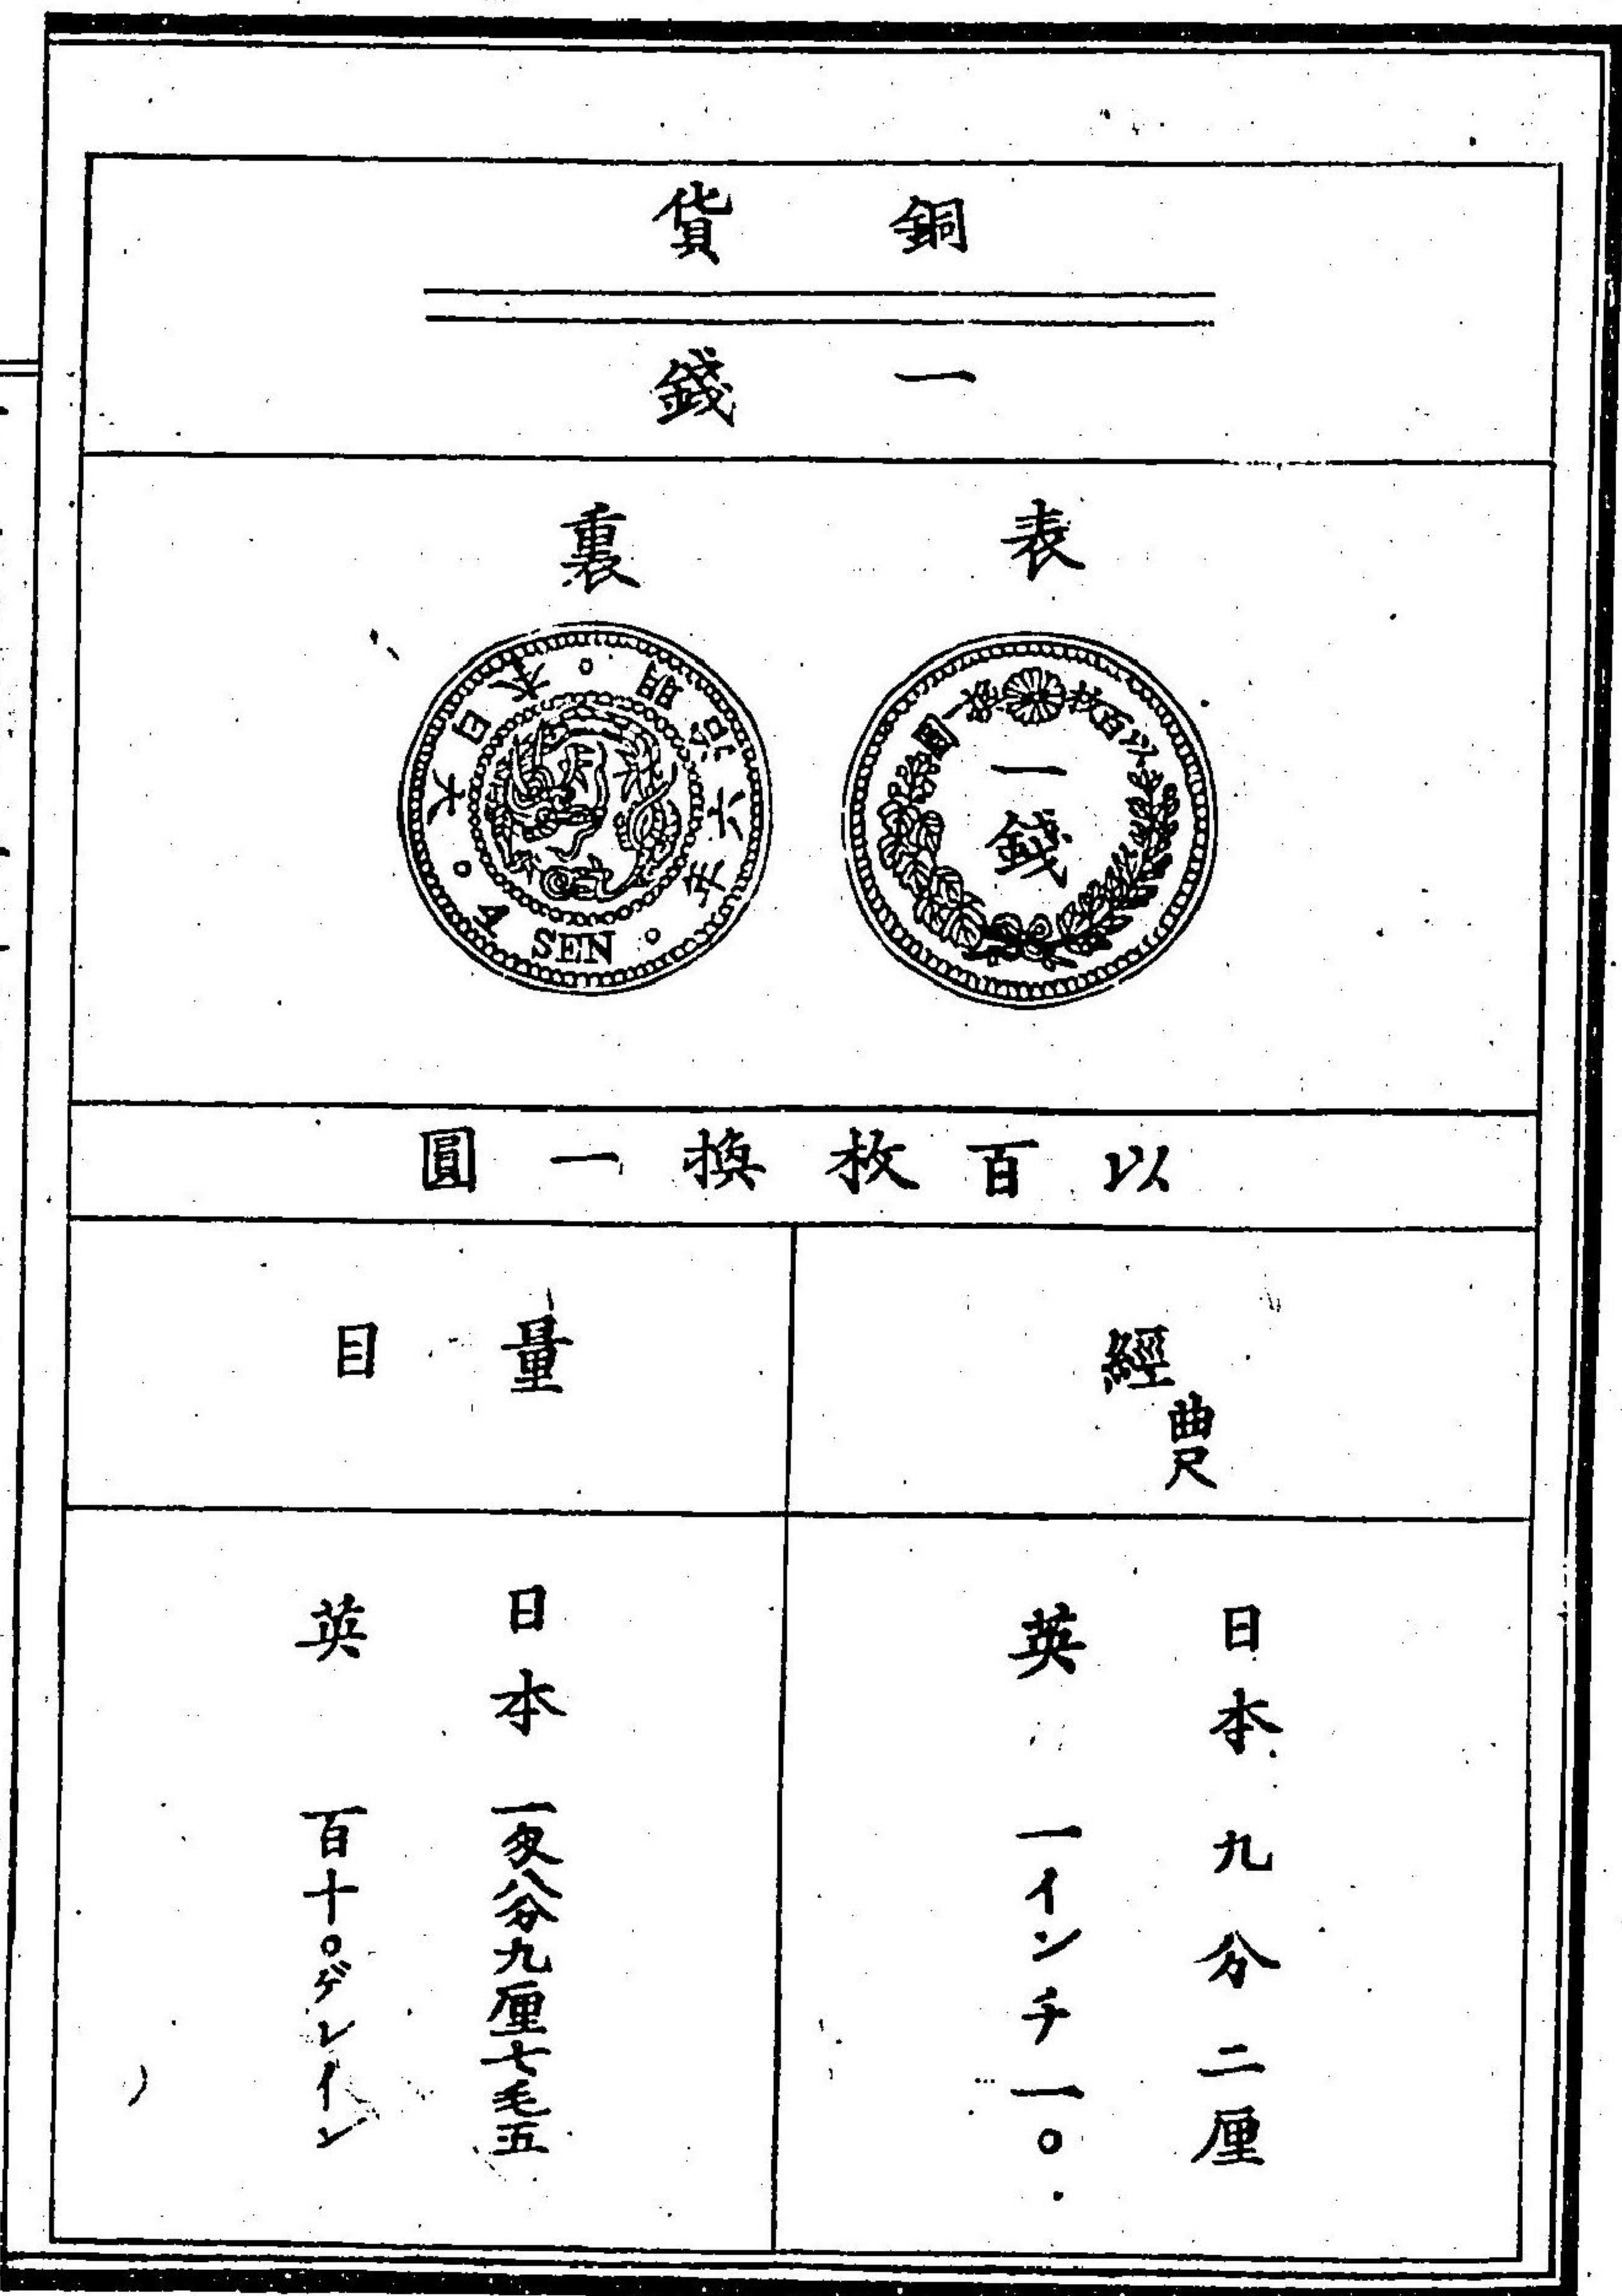 銅貨
一錢
表
以百枚換一圓
一錢
裏
大日本
明治六年
1 SEN
以百枚換一圓
經
曲尺
日本 九分二厘
英 一インチ一〇
量目
日本 一匁八分九厘七毛五
英 百十〇ゲレイン